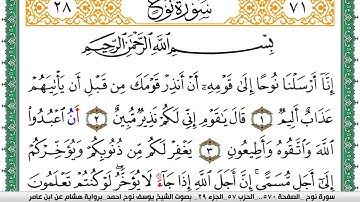 ٢٨ سُورَةُ نُوحٍ ٧١
بِسْمِ اللَّهِ الرَّحْمَٰنِ الرَّحِيمِ
إِنَّا أَرْسَلْنَا نُوحًا إِلَىٰ قَوْمِهِۦ أَنْ أَنذِرْ قَوْمَكَ مِن قَبْلِ أَن يَأْتِيَهُمْ
عَذَابٌ أَلِيمٌ ١ قَالَ يَٰقَوْمِ إِنِّي لَكُمْ نَذِيرٌ مُّبِينٌ ٢ أَنُ اعْبُدُوا
اللَّهَ وَاتَّقُوهُ وَأَطِيعُونِ ٣ يَغْفِرْ لَكُم مِّن ذُنُوبِكُمْ وَيُؤَخِّرْكُمْ
إِلَىٰ أَجَلٍ مُّسَمًّى إِنَّ أَجَلَ اللَّهِ إِذَا جَاءَ لَا يُؤَخَّرُ لَوْ كُنتُمْ تَعْلَمُونَ
سورة نوح _ الصفحة ٥٧٠.. الحزب ٥٧ الجزء ٢٩ . بصوت الشيخ يوسف نوح احمد برواية هشام عن ابن عامر